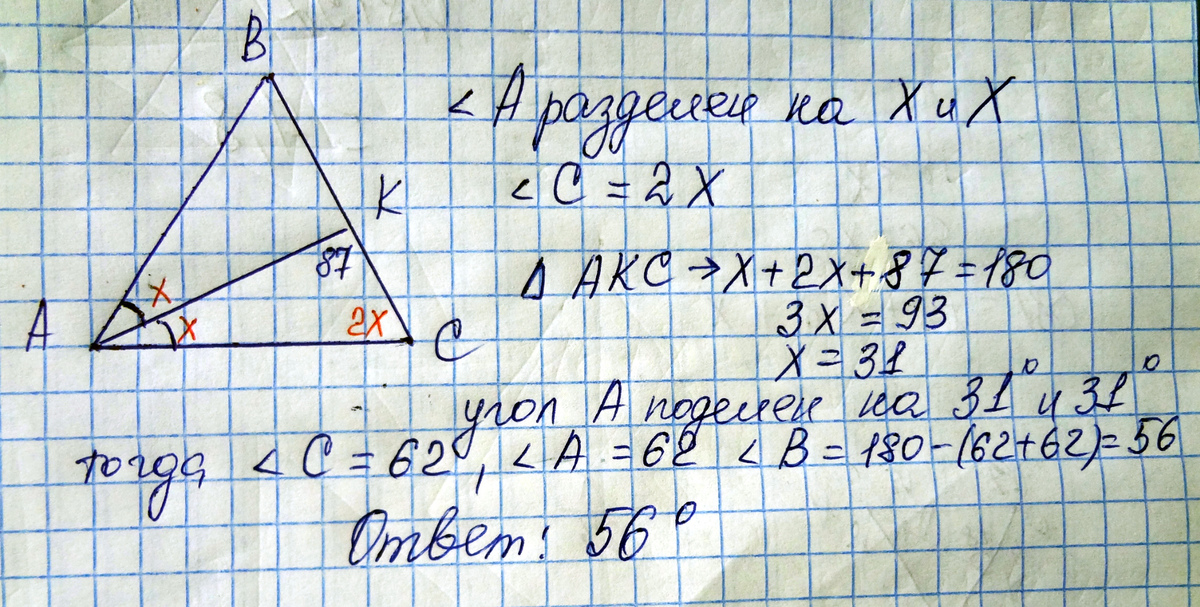 B
< A разделен на X и X
K
< C = 2X
87
Δ AKC → X + 2X + 87 = 180
x
3X = 93
A
x
2X
C
X = 31
угол A поделен на 31° и 31°
тогда < C = 62, < A = 62 < B = 180 - (62+62) = 56
Ответ: 56°